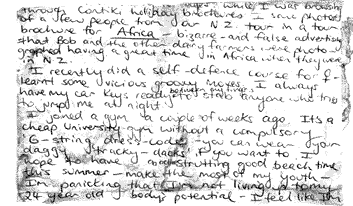 through Contiki holiday brochures I saw photos
of a few people from your N.Z. tour in a tour
brochure for Africa - bizarre - and false advertising
that Bob and the other dairy farmers were photo
graphed having a great time in Africa when they were
in N.Z.
I recently did a self-defence course & I
learnt some vicious groovy moves. I always
have my car keys ready between my fingers to stab anyone who tries
to jump me at night.
I joined a gym a couple of weeks ago. It's a
cheap University gym without a compulsory
G-string dress-code - you can wear your
daggy tracky-dacks if you want to. I
hope to have a strutting good beach time
this summer - make the most of my youth -
I'm panicking that I'm not living up to my
24 year old body's potential - I feel like I'm